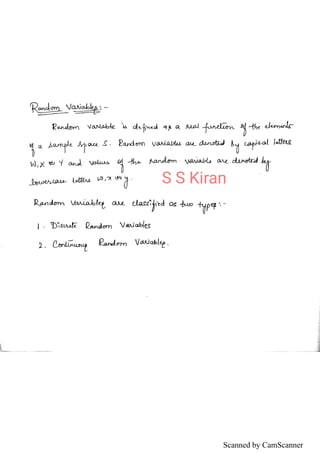 Random Variables :-
Random variable is defined as a real function of the elements
of a sample space S. Random variables are denoted by capital letters
W, X or Y and values of the random variable are denoted by
lowercase letters w, x or y.
S S Kiran
Random Variables are classified as two types :-
1. Discrete Random Variables
2. Continuous Random Variables.
Scanned by CamScanner